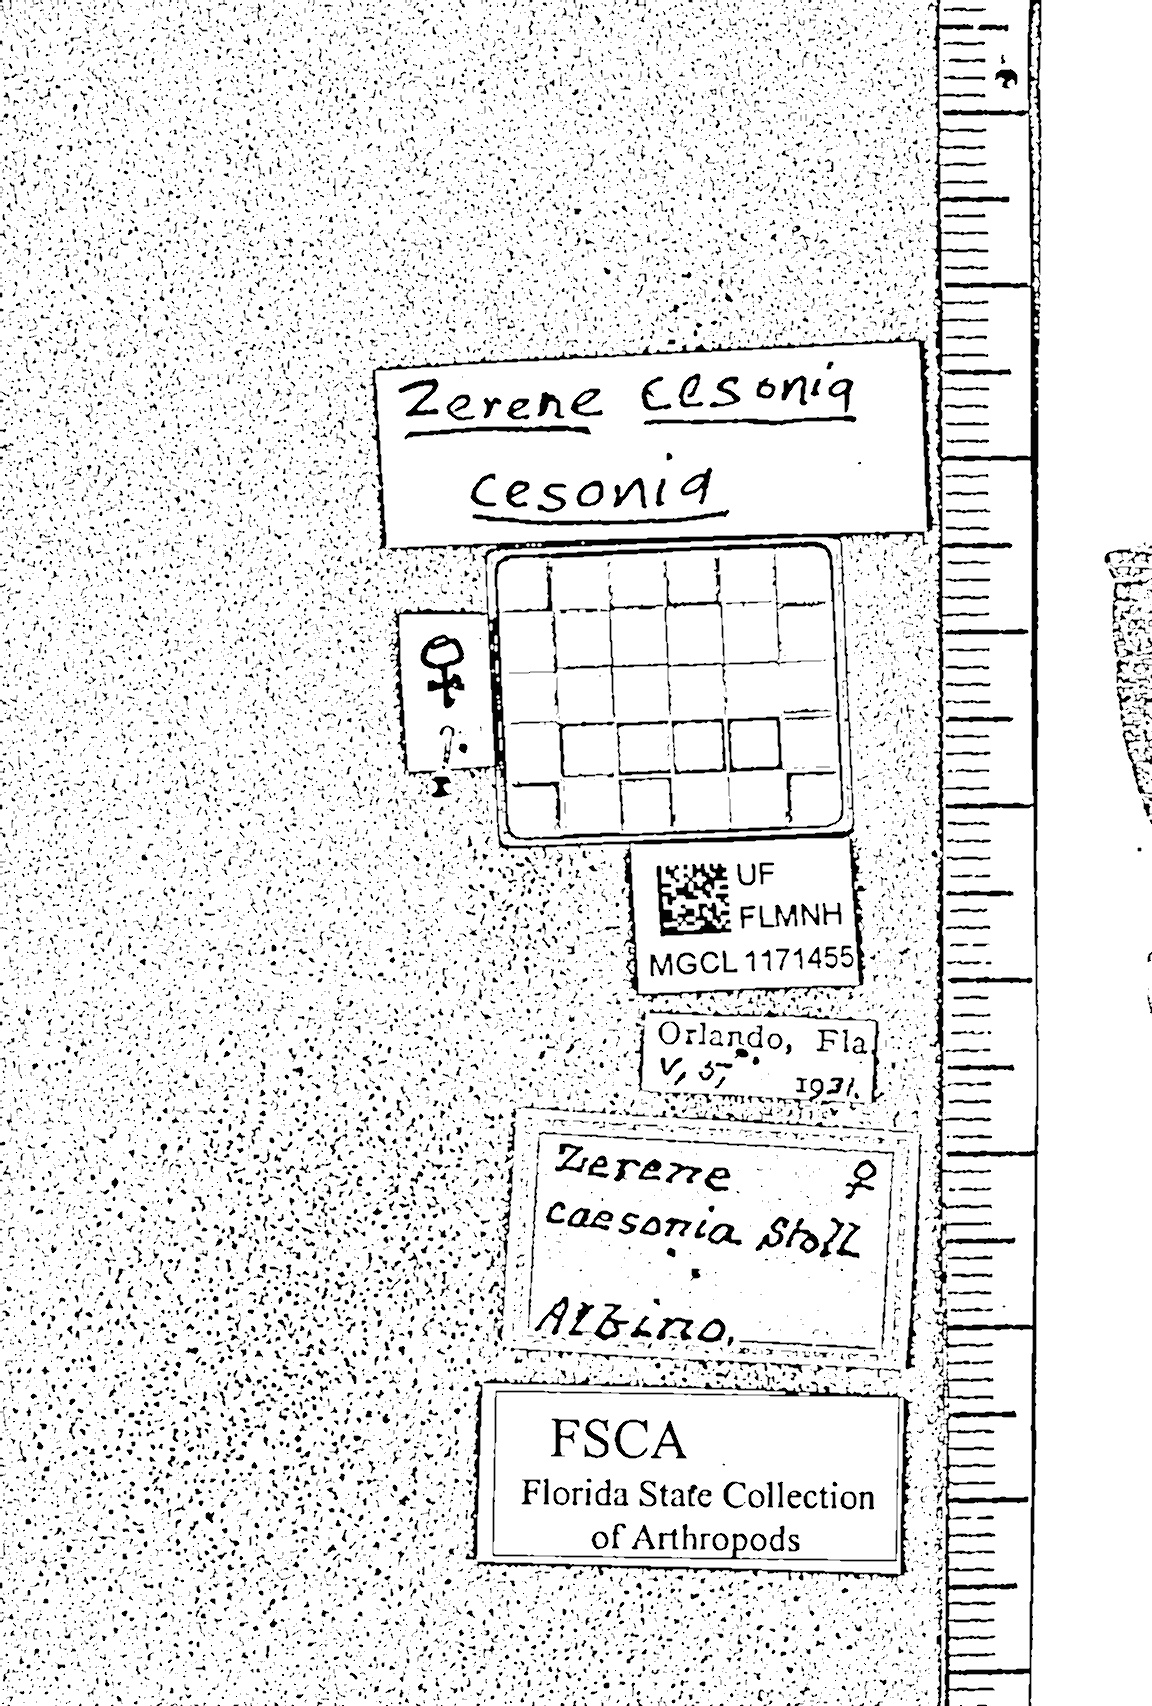 Zerene cesonia
cesonia
♀
?.
UF
FLMNH
MGCL 1171455
Orlando, Fla
V, 5, 1931.
Zerene ♀
caesonia Stoll
Albino.
FSCA
Florida State Collection
of Arthropods